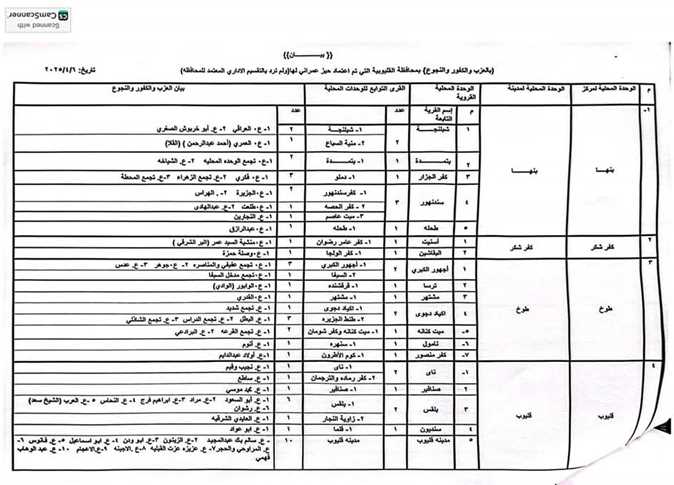 Scanned with
CS CamScanner
(( بيـــــــــان ))
(بالعزب والكفور والنجوع) بمحافظة القليوبية التي تم اعتماد حيز عمراني لها(ولم ترد بالتقسيم الاداري المعتمد للمحافظه) تاريخ: ٢٠٢٥/٤/٦
م الوحدة المحلية لمركز الوحدة المحلية لمدينة الوحدة المحلية القروية القرى التوابع للوحدات المحلية بيان العزب والكفور والنجوع
م إسم القرية التابعة عدد عدد
١- بنهـــا بنهـــا ١ شبلنجـة ٢ ١- شبلنجة ٢ ١- ع. العراقي ٢- ع. أبو خربوش الصغري
٢- منية السباع ١ ١- ع. العمري (أحمد عبدالرحمن ) (القلا)
٢ بتمــدة ١ ١- بتمــدة ١ ١- ع. تجمع الوحده المحليه ٢- ع. الشياخه
٣ كفر الجزار ١ ١- دملو ٣ ١- ع. قناري ٢- ع. تجمع الزهراء ٣- ع. تجمع المحطة
٤ سندنهور ٣ ١- كفرسندنهور ١- ع.الجزيرة ٢- . الهراس
٢- كفر الحصه ١- ع.طلعت ٢- ع. عبدالهادى
٣- ميت عاصم ١- ع. النجارين
٥ طحله ١ ١- طحله ١ ١- ع. عبدالرازق
٢ كفر شكر كفر شكر ١ أسنيت ١ ١- كفر عامر رضوان ١ ١- ع. منشية السيد عمر (البر الشرقي )
٢ البقاشين ١ ١- كفر الولجا ١ ١- ع. وصلة حمزة
٣ طوخ طوخ ١ أجهور الكبري ٢ ١- أجهور الكبري ٣ ١- ع. تجمع عفيفي والمناصره ٢- ع.جوهر ٣- ع. عدس
٢- السيفا ١ ١- ع.تجمع مدخل السيفا
٢ ترسا ١ ١- قرقشنده ١ ١- ع. الوابور (الوادي)
٣ مشتهر ١ ١- مشتهر ١ ١- ع. القدري
٤ اكياد دجوى ٢ ١- اكياد دجوى ١ ١- ع. تجمع شديد
٢- طنط الجزيره ٣ ١- ع. البطل ٢- ع. تجمع الدراس ٣- ع. تجمع الشاذلي
٥- ميت كنانه ١ ١- ميت كنانه وكفر شومان ٢ ١- ع. تجمع القرعه ٢- ع. البرادعي
٦- نامول ١ ١- سنهره ١ ١- ع. أنوم
٧- كفر منصور ١ ١- كوم الأطرون ١ ١- ع. أولاد عبدالدايم
٤ قليوب قليوب ١- ناى ٢ ١- ناى ١ ١- ع. نجيب وفيم
٢- كفر رماده والترجمان ١ ١- ع. ساطع
٢ صنافير ١ ١- صنافير ١ ١- ع. محمد موسي
٣ بلقس ٢ ١- بلقس ٦ ١- ع. أبو السعود ٢- ع. مراد ٣- ع. ابراهيم فرج ٤- ع. النحاس ٥- ع. العرب (الشيخ سعد)
٦- ع. رشوان
٢- زاوية النجار ١ ١- ع. العابدي الشرقيه
٤ سنديون ١ ١- قلما ١ ١- ع. ابو عواد
٥ مدينه قليوب مدينه قليوب ١٠ ع. سالم بك عبدالمجيد ٢- ع. الزيتون ٣- ع. أبو ودن ٤- ع. ابو اسماعيل ٥- ع. فانوس ٦-
ع. المراوحي والحجر ٧- ع. عزيزه عزت القبليه ٨- ع. الاجينه ٩- ع.الاعجام ١٠- ع. عبد الوهاب
فهمي